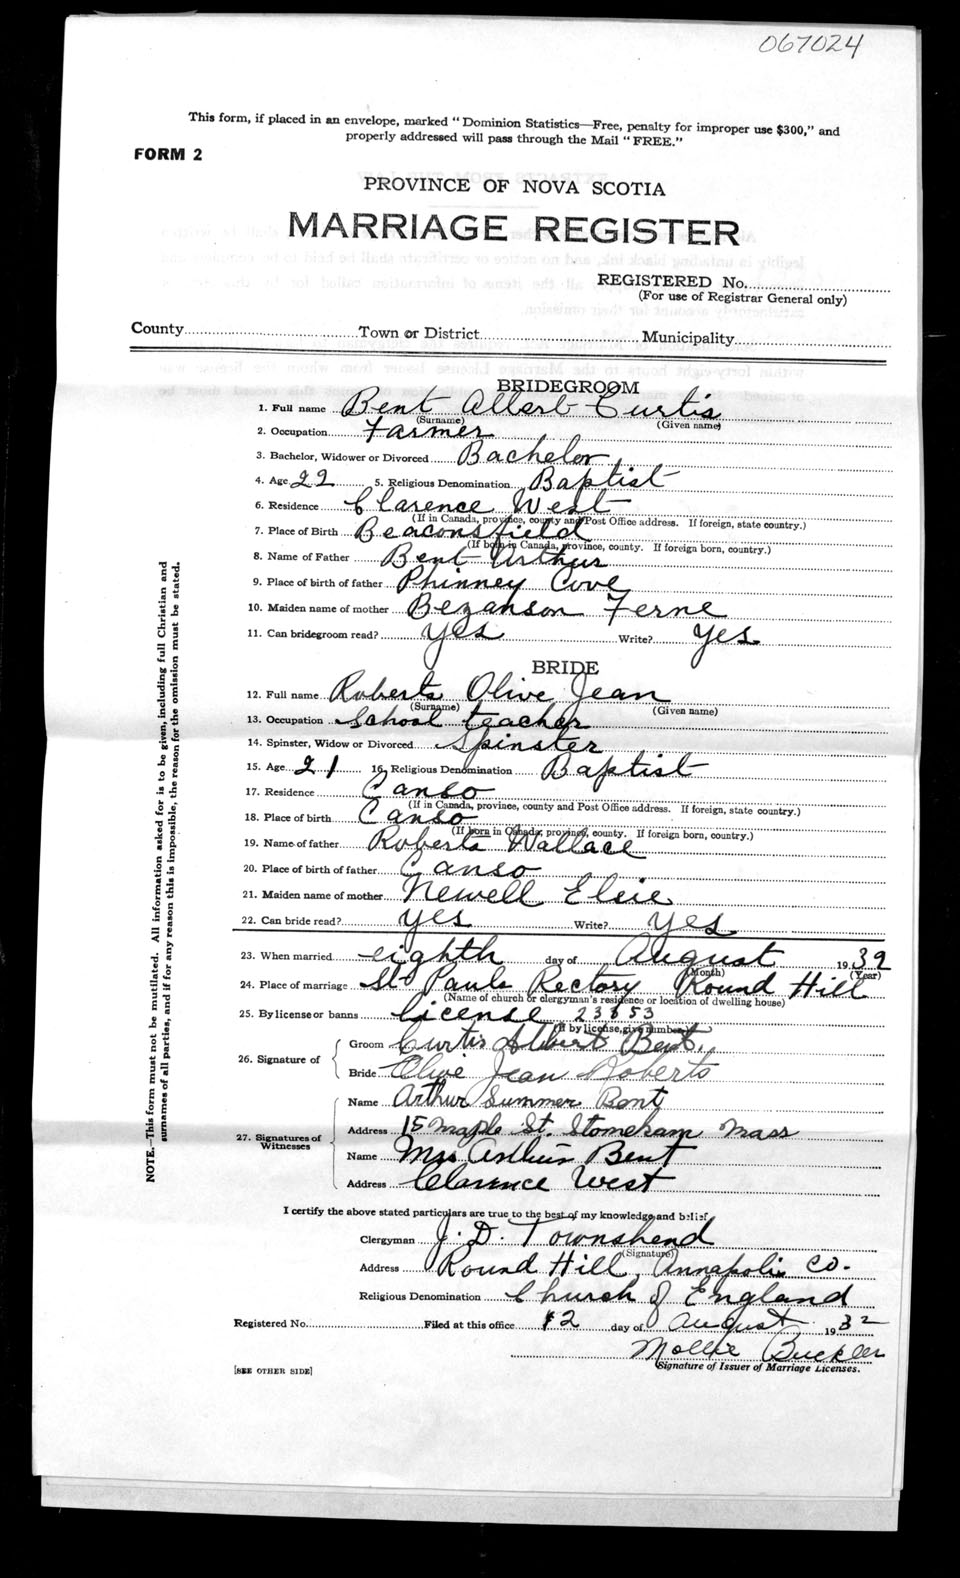 067024
This form, if placed in an envelope, marked "Dominion Statistics—Free, penalty for improper use $300," and
properly addressed will pass through the Mail "FREE."
FORM 2
PROVINCE OF NOVA SCOTIA
MARRIAGE REGISTER
REGISTERED No.
(For use of Registrar General only)
County Town or District Municipality
BRIDEGROOM
1. Full name Bent Albert Curtis
(Surname) (Given name)
2. Occupation Farmer
3. Bachelor, Widower or Divorced Bachelor
4. Age 22 5. Religious Denomination Baptist
6. Residence Clarence West
(If in Canada, province, county and Post Office address. If foreign, state country.)
7. Place of Birth Beaconsfield
(If born in Canada, province, county. If foreign born, country.)
8. Name of Father Bent Arthur
9. Place of birth of father Phinney Cove
10. Maiden name of mother Bezanson Ferne
11. Can bridegroom read? yes Write? yes
BRIDE
12. Full name Roberts Olive Jean
(Surname) (Given name)
13. Occupation School teacher
14. Spinster, Widow or Divorced Spinster
15. Age 21 16. Religious Denomination Baptist
17. Residence Canso
(If in Canada, province, county and Post Office address. If foreign, state country.)
18. Place of birth Canso
(If born in Canada, province, county. If foreign born, country.)
19. Name of father Roberts Wallace
20. Place of birth of father Canso
21. Maiden name of mother Newell Elsie
22. Can bride read? yes Write? yes
23. When married eighth day of August 1939
(Month) (Year)
24. Place of marriage St Pauls Rectory Round Hill
(Name of church or clergyman's residence or location of dwelling house)
25. By license or banns License
(If by license, give number)
26. Signature of Groom Curtis Albert Bent.
Bride Olive Jean Roberts
27. Signatures of Witnesses
Name Arthur Sumner Bent
Address 15 Maple St. Stoneham Mass
Name Mrs Arthur Bent
Address Clarence West
I certify the above stated particulars are true to the best of my knowledge and belief
Clergyman J. D. Townshend
(Signature)
Address Round Hill, Annapolis Co.
Religious Denomination Church of England
Registered No. Filed at this office 12 day of August 193
Mollie Buckler
Signature of Issuer of Marriage Licenses.
[SEE OTHER SIDE]
NOTE.—This form must not be mutilated. All information asked for is to be given, including full Christian and
surnames of all parties, and if for any reason this is impossible, the reason for the omission must be stated.